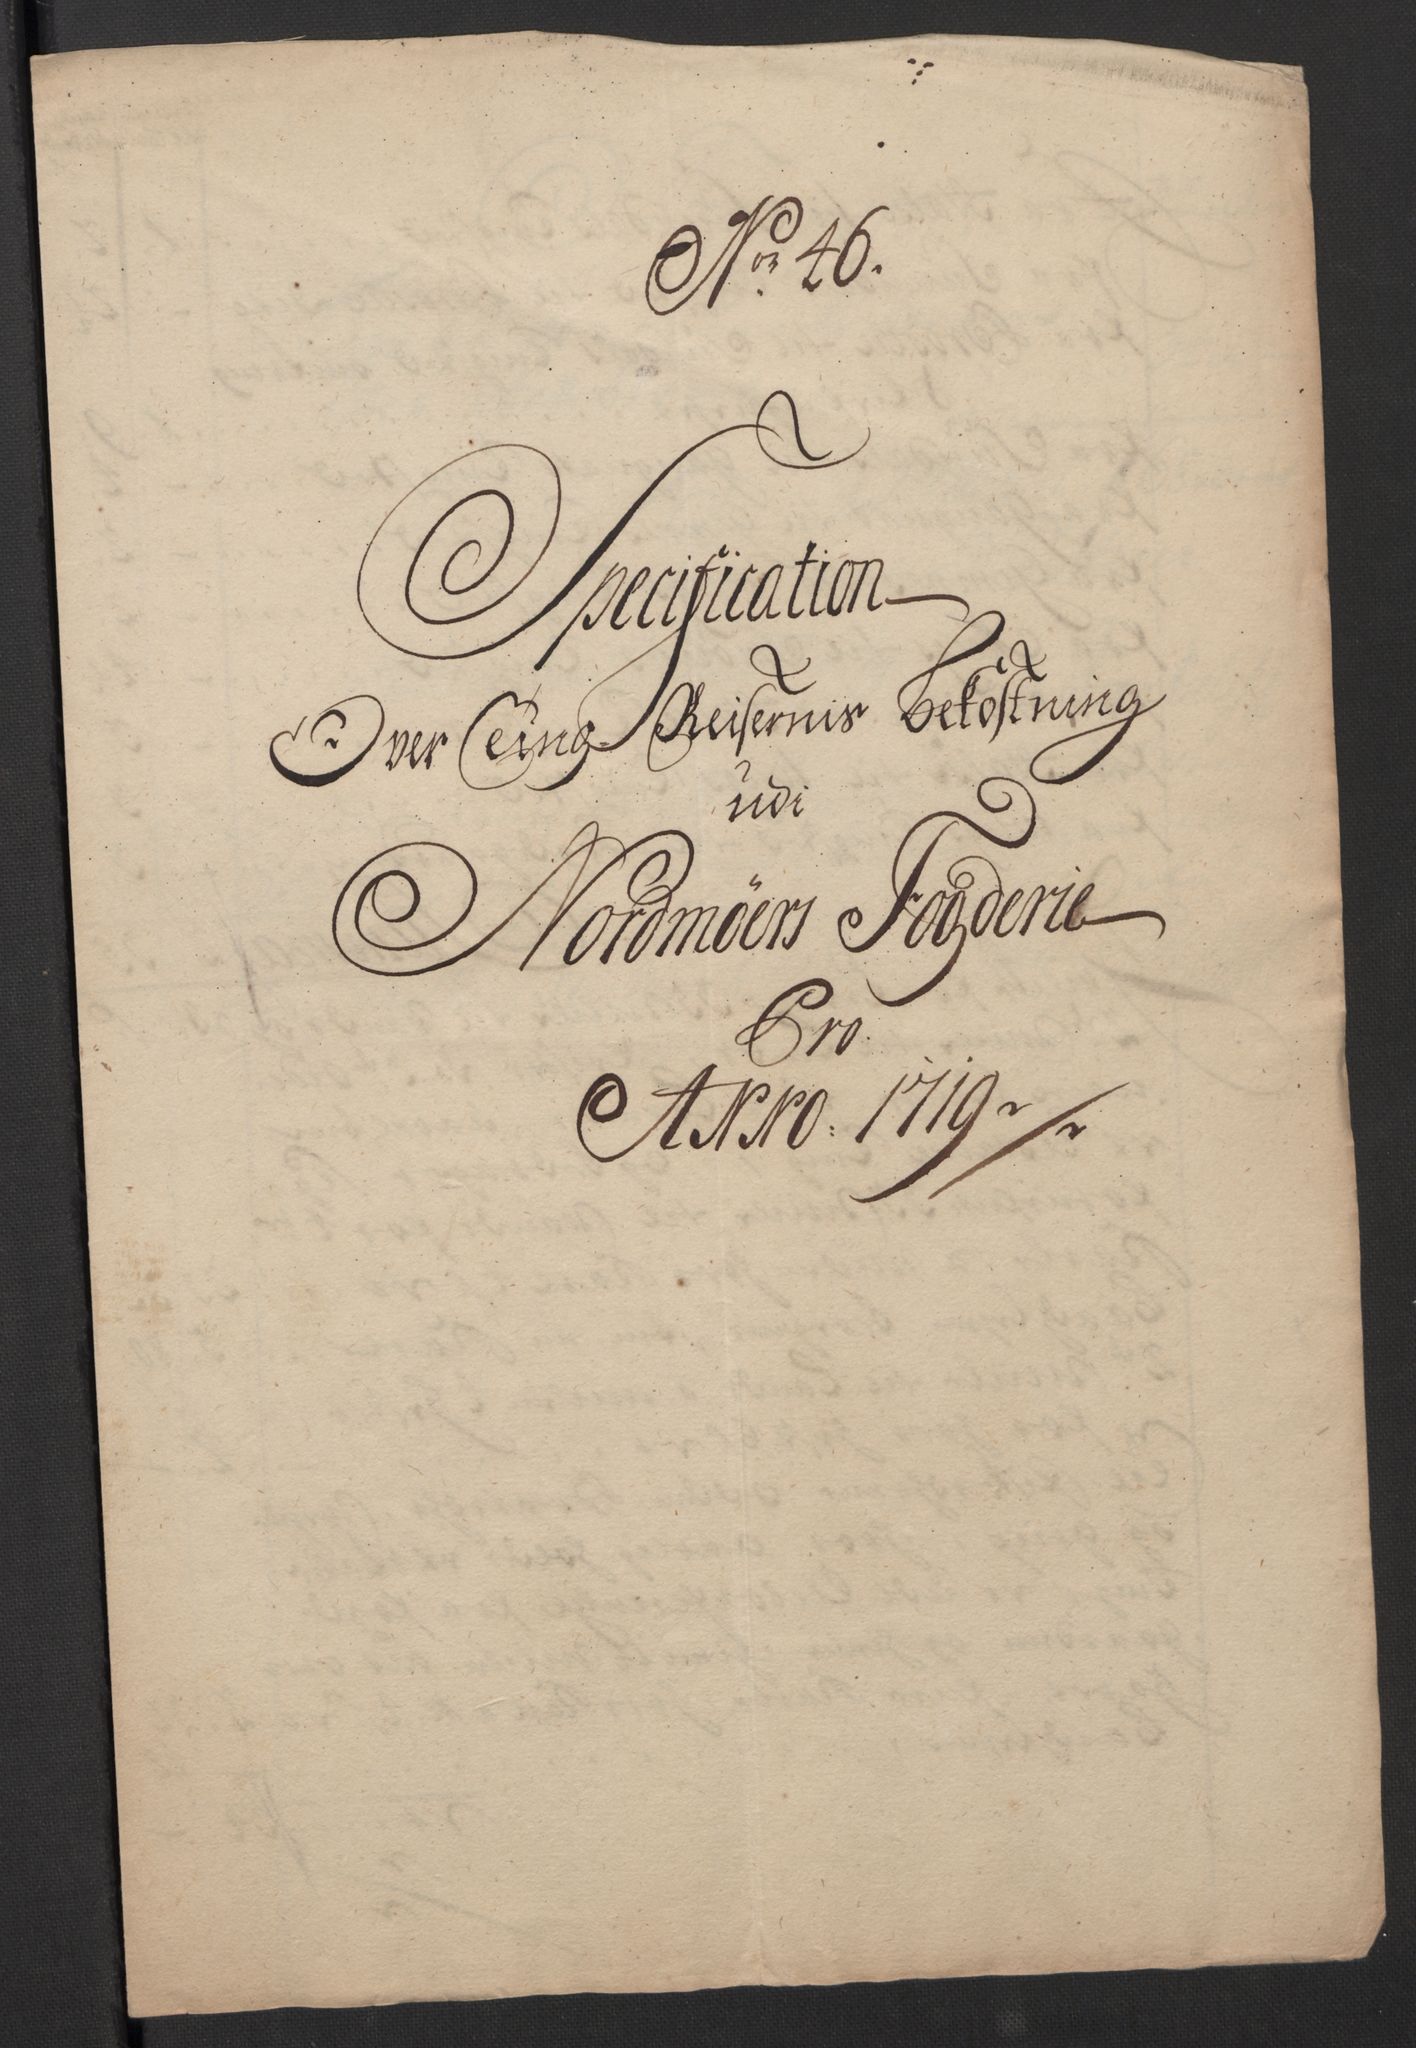 No 46.
Specification
Over Ting Reisernis bekostning
udi
Nordmöers Fogderie
Pro.
ANNO. 1719